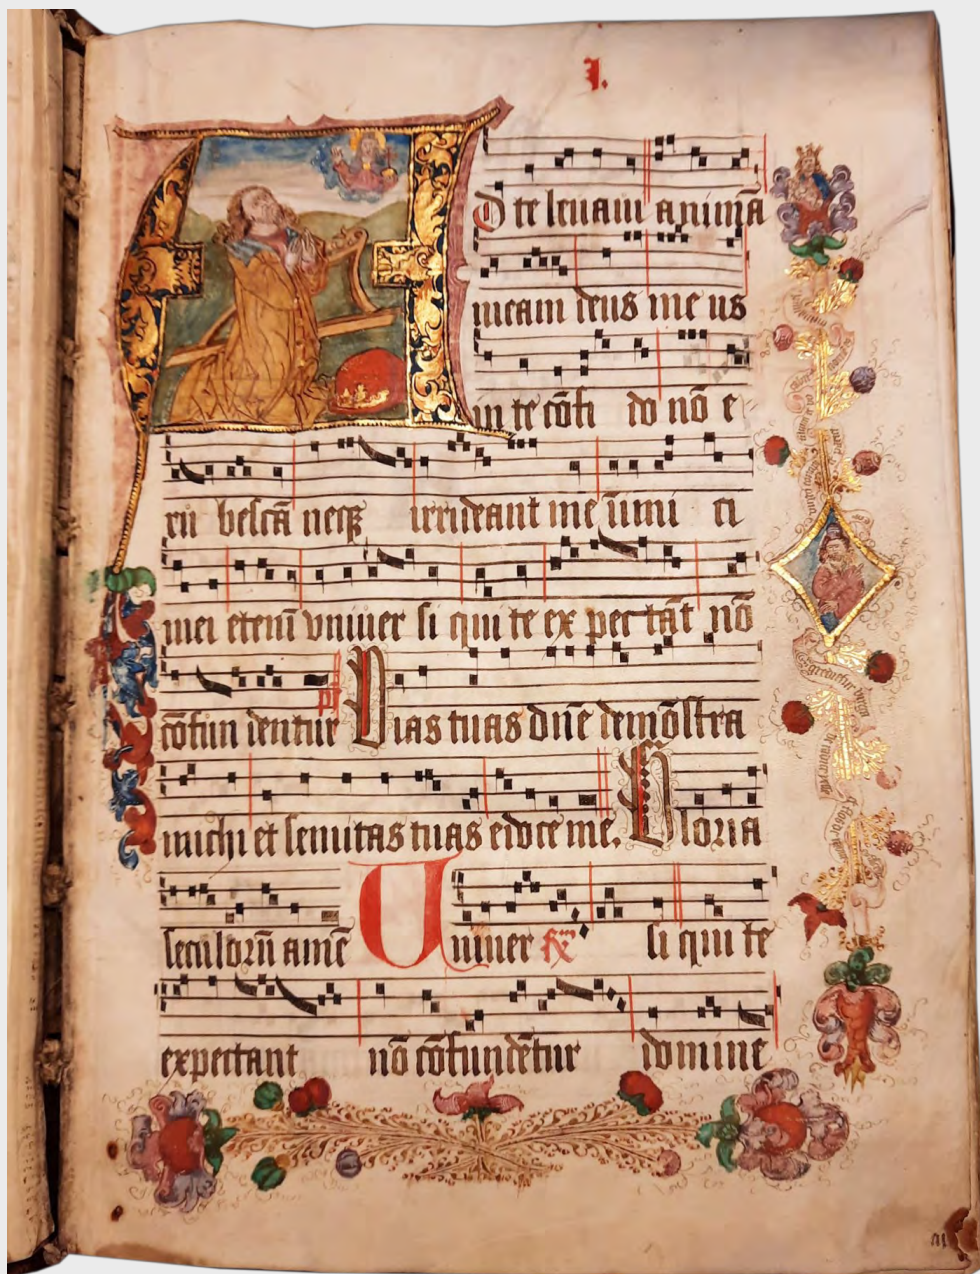 I.
Ad te leuam animā
meam deus me us
in te cōfi do nō e
rū bescā neqȝ irrideant me īimi ci
mei etenī vniuer si qui te ex pectāt nō
cōfun dentur ps Uias tuas dn̄e demōstra
michi et semitas tuas edoce me. Gloria
seculorū amē Uniuer si qui te
expectant nō cōfundētur domine